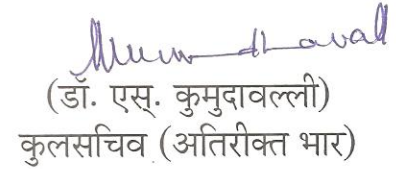 (डॉ. एस्. कुमुदावल्ली)
कुलसचिव (अतिरीक्त भार)